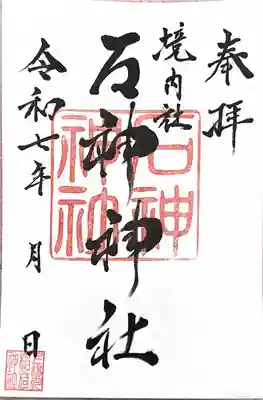 奉拝
境内社
石神神社
令和七年 月 日
石神
神社